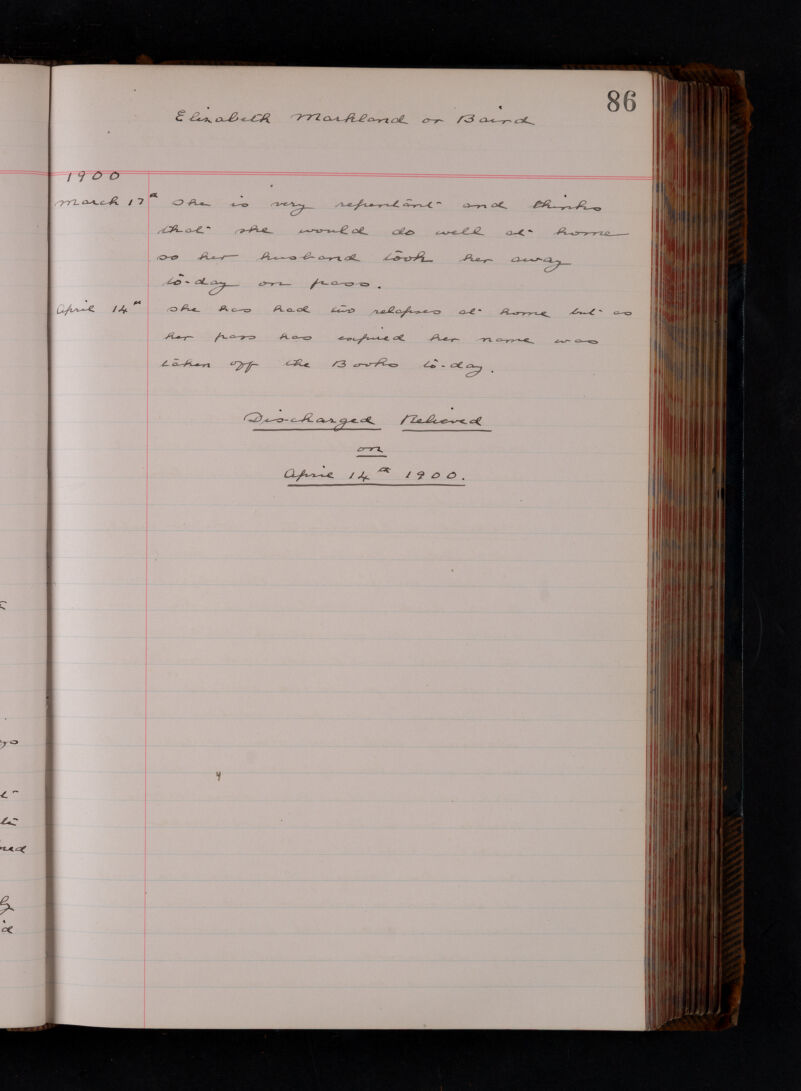 86
Elizabeth Markland or Baird
1900
March 17th She is very repentant and thinks
that she would do well at home
so her husband took her away
to-day on pass.
April 14th She has had two relapses at home but as
her pass has expired her name was
taken off the Books to-day.
Discharged Relieved
on
April 14th 1900.